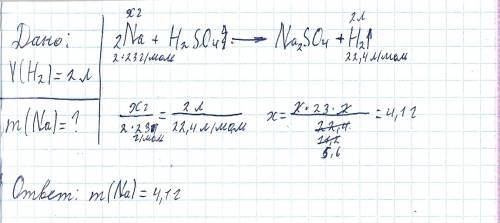 Дано:
V(H₂)=2л
m(Na)=?
xг 2л
2Na + H₂SO₄ → Na₂SO₄ + H₂↑
2·23г/моль 22,4 л/моль
xг/2·23г/моль = 2л/22,4 л/моль x = 2·23·2/22,4 = 4,1г
11,2
5,6
Ответ: m(Na)=4,1г